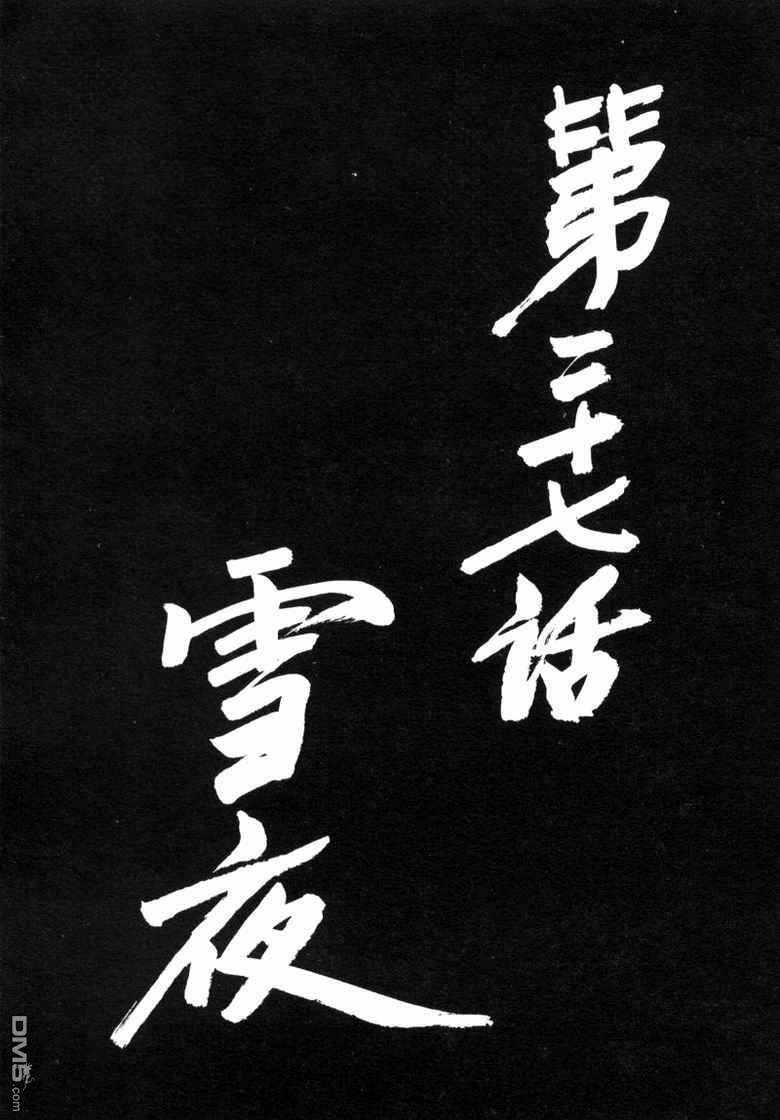 第二十七話
雪夜
DM5.com